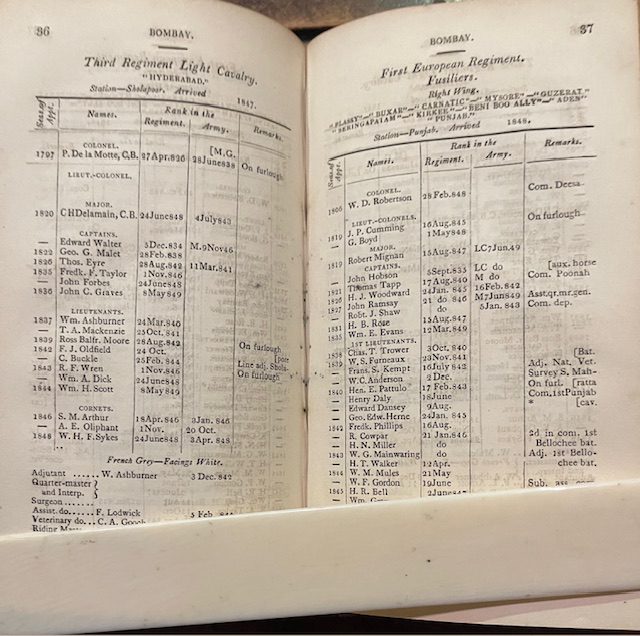 36
BOMBAY.
Third Regiment Light Cavalry.
"HYDERABAD."
Station—Sholapoor. Arrived 1847.
Seas of Appt. Names. Rank in the Regiment. Army. Remarks.
COLONEL.
1797 P. De la Motte, C.B. 27 Apr. 826 [M,G. 28 June 838 On furlough
LIEUT.-COLONEL.
MAJOR.
1820 C H Delamain, C.B. 24 June 848 4 July 843
CAPTAINS.
— Edward Walter 3 Dec. 834 M. 9 Nov 46
1822 Geo. G. Malet 28 Feb. 838
1826 Thos. Eyre 28 Aug. 842 11 Mar. 841
1835 Fredk. F. Taylor 1 Nov. 846
— John Forbes 24 June 848
1836 John C. Graves 8 May 849
LIEUTENANTS.
1837 Wm. Ashburner 24 Mar. 840
— T. A. Mackenzie 25 Oct. 841
1839 Ross Balfr. Moore 28 Aug. 842
1842 F. J. Oldfield 24 Oct. On furlough
— C. Buckle 25 Feb. 844 [poor
1843 R. F. Wren 1 Nov. 846 Line adj. Shola-
— Wm. A. Dick 24 June 848 On furlough
1844 Wm. H. Scott 8 May 849
CORNETS.
1846 S. M. Arthur 18 Apr. 846 3 Jan. 846
— A. E. Oliphant 1 Nov. 20 Oct.
1848 W. H. F. Sykes 24 June 848 3 Apr. 848
French Grey—Facings White.
Adjutant ...... W. Ashburner 3 Dec. 842
Quarter-master }
and Interp. }
Surgeon .......
Assist. do..... F. Lodwick 5 Feb.
Veterinary do... C. A.
Riding
37
BOMBAY.
First European Regiment.
Fusiliers.
Right Wing.
"PLASSY"—"BUXAR"—"CARNATIC"—"MYSORE"—"GUZERAT"
"SERINGAPATAM"—"KIRKEE"—"BENI BOO ALLY"—"ADEN"
"PUNJAB."
Station—Punjab. Arrived 1848.
Seas of Appt. Names. Rank in the Regiment. Army. Remarks.
COLONEL.
1806 W. D. Robertson 28 Feb. 848 Com. Deesa
LIEUT.-COLONELS.
1819 J. P. Cumming 16 Aug. 845 On furlough
— G. Boyd 1 May 848
MAJOR.
1819 Robert Mignan 15 Aug. 847 LC 7 Jun. 49
CAPTAINS. [aux. horse
— John Hobson 5 Sept. 835 LC do Com. Poonah
1821 Thomas Tapp 17 Aug. 840 M do
1826 H. J. Woodward 24 Jan. 845 16 Feb. 842
— John Ramsay 21 do 846 M 7 Jun 849 Asst. qr. mr. gen.
1827 Robt. J. Shaw do 5 Jan. 843 Com. dep.
— H. B. Rose 15 Aug. 847
1835 Wm. E. Evans 12 Mar. 849
1ST LIEUTENANTS.
1838 Chas. T. Trower 3 Oct. 840 [Bat.
— W. S. Furneaux 23 Nov. 841 Adj. Nat. Vet.
1839 Frans. S. Kempt 16 July 842 Survey S. Mah-
— W. C. Anderson 2 Dec. [ratta
1840 Hen. E. Pattulo 17 Feb. 843 On furl.
— Henry Daly 18 June Com. 1st Punjab
— Edward Dansey 9 Aug. * [cav.
— Geo. Edw. Herne 24 Jan. 845
1842 Fredk. Phillips 16 Aug.
— R. Cowpar 21 Jan. 846 2d in com. 1st
— H. N. Miller do Bellochee bat.
1843 W. G. Mainwaring do Adj. 1st Bello-
— H. T. Walker 12 Apr. chee bat.
1844 W. M. Mules 21 May
— W. F. Gordon 19 June
1845 H. R. Bell 2 June 847 Sub. ass. com
— Wm.